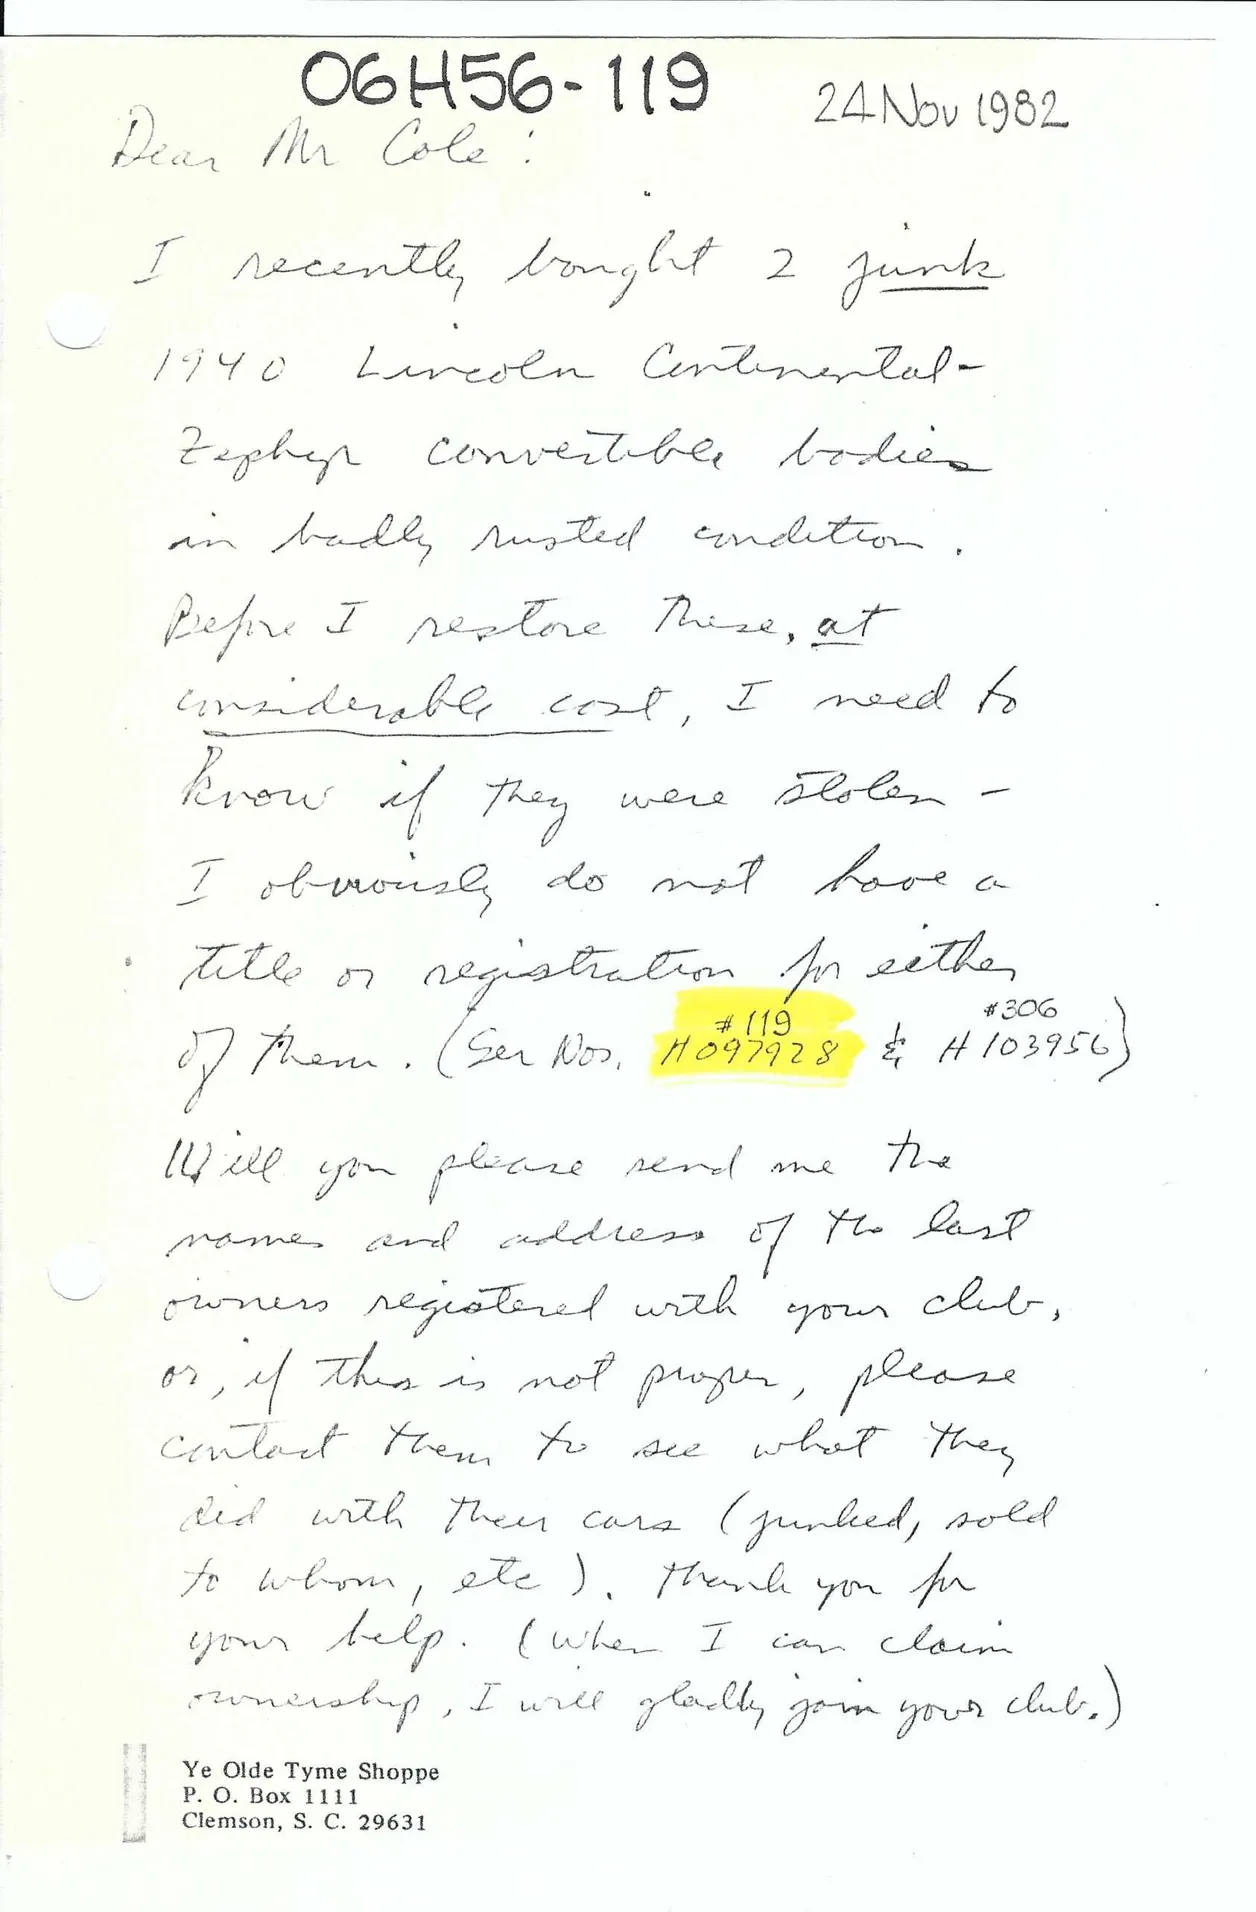 06H56-119
24 Nov 1982
Dear Mr Cole:
I recently bought 2 junk
1940 Lincoln Continental-
Zephyr convertible bodies
in badly rusted condition.
Before I restore these, at
considerable cost, I need to
know if they were stolen -
I obviously do not have a
title or registration for either
#119 #306
of them. (Ser Nos. H097928 & H103956)
Will you please send me the
names and address of the last
owners registered with your club,
or, if this is not proper, please
contact them to see what they
did with their cars (junked, sold
to whom, etc). Thank you for
your help. (When I can claim
ownership, I will gladly join your club.)
Ye Olde Tyme Shoppe
P. O. Box 1111
Clemson, S. C. 29631